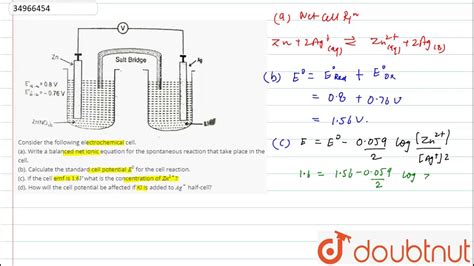 34966454
V
Zn
Salt Bridge
Ag
= 0.8 V
= - 0.76 V
Consider the following electrochemical cell.
(a). Write a balanced net ionic equation for the spontaneous reaction that take place in the
cell.
(b). Calculate the standard cell potential E° for the cell reaction.
(c). If the cell emf is 1.6V what is the concentration of Zn²⁺?
(d). How will the cell potential be affected if KI is added to Ag⁺ half-cell?
(a) Net Cell Rxⁿ
Zn + 2Ag⁺ ⇌ Zn²⁺(aq) + 2Ag(s)
(b) E° = E°Red + E°Ox
= 0.8 + 0.76 V
= 1.56 V.
(c) E = E° - 0.059/2 log [Zn²⁺]/[Ag⁺]²
1.6 = 1.56 - 0.059/2 log
doubtnut